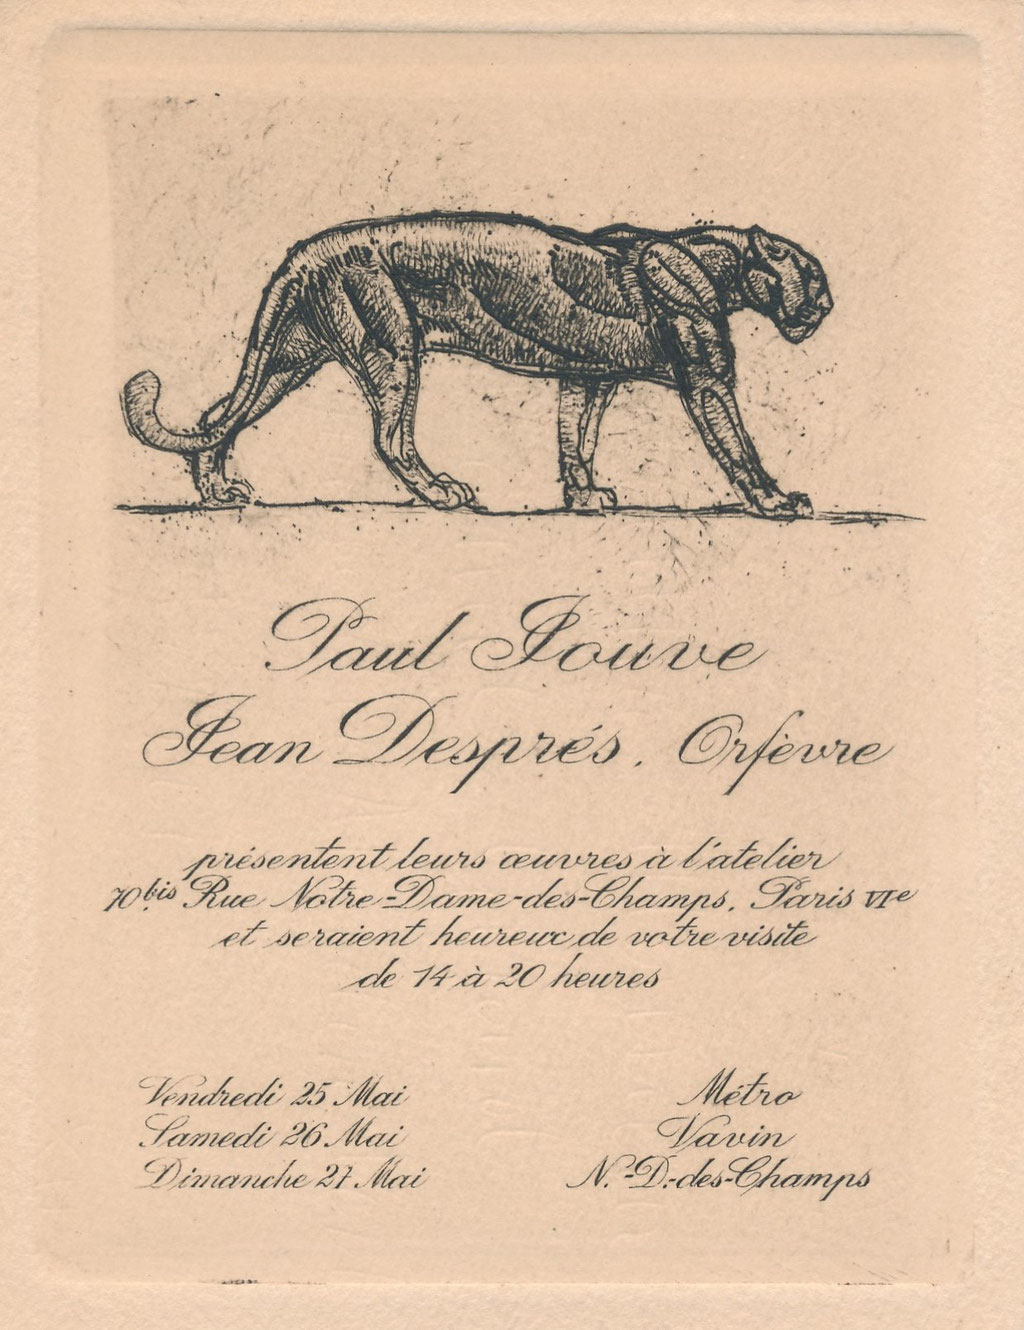 Paul Jouve
Jean Després. Orfèvre
présentent leurs œuvres à l'atelier
70bis Rue Notre-Dame-des-Champs. Paris VIe
et seraient heureux de votre visite
de 14 à 20 heures
Vendredi 25 Mai
Samedi 26 Mai
Dimanche 27 Mai
Métro
Vavin
N.-D.-des-Champs